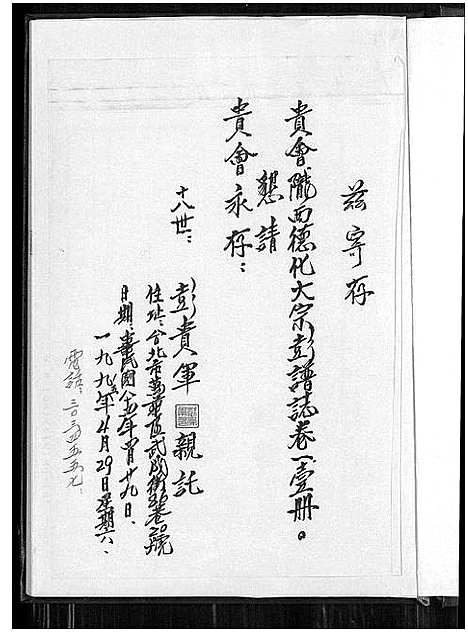 茲寄存
貴會隴西德化大宗彭譜誌卷一壹冊。
懇請
貴會永存：
十八世：
彭貴軍 親託
住址：台北市萬華區武成街 巷 號
日期：中華民國 年四月廿九日、
一九九 年4月29日星期六、
電話：三〇 五五七